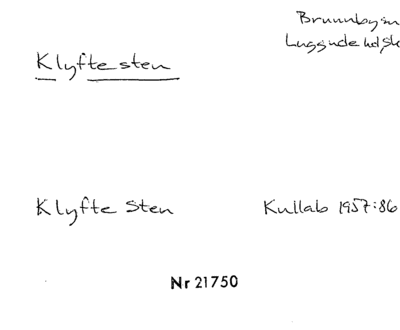 Brunnby sn
Luggude hd Sk
Klyftesten
Klyfte Sten
Kullab 1957:86
Nr 21750